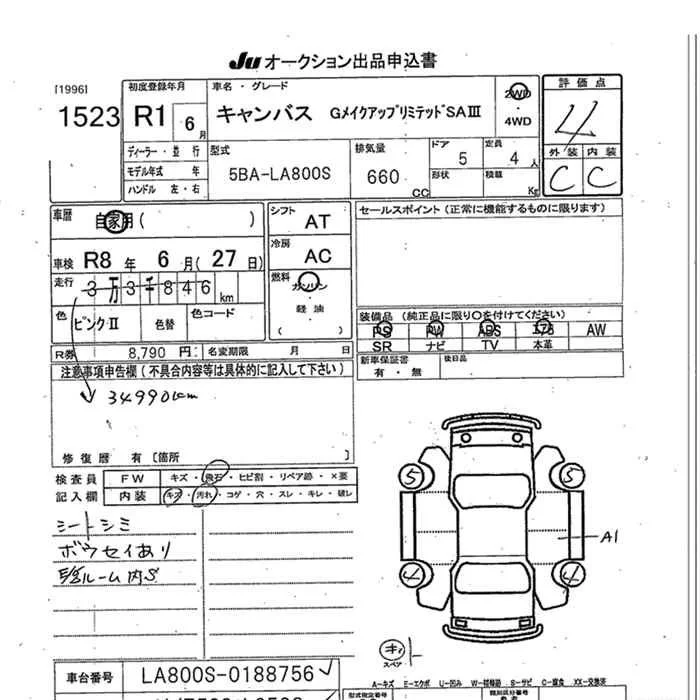 Ju オークション出品申込書
[1996]
1523
初度登録年月
R1 6月
車名・グレード
キャンバス GメイクアップリミテッドSAⅢ
2WD
・
4WD
評価点
4
外装 内装
C C
ディーラー・並行
モデル年式 年
ハンドル 左・右
型式
5BA-LA800S
排気量
660 CC
ドア
5
定員
4人
形状
積載
Kg
車歴
自家用( )
シフト
AT
セールスポイント(正常に機能するものに限ります)
車検
R8年 6月(27日)
冷房
AC
走行
3万3千846km
燃料
ガソリン
・
軽油
( )
色
ピンクⅡ
色替
色コード
装備品(純正品に限り○を付けてください)
PS PW ABS エアB AW
SR ナビ TV 本革
R券 8,790円
名変期限 月 日
新車保証書
有・無
後日品
注意事項申告欄(不具合内容等は具体的に記入して下さい)
34990km
修復歴 有[箇所 ]
検査員
記入欄
FW キズ・飛石・ヒビ割・リペア跡・×要
内装 キズ・汚れ・コゲ・穴・スレ・キレ・破レ
シートシミ
ボウセイあり
ルーム内S
5 5
A1
4 4
キ
スペア
車台番号 LA800S-0188756
A-キズ E-エクボ U-凹み W-補修跡 S-サビ C-腐食 XX-交換済